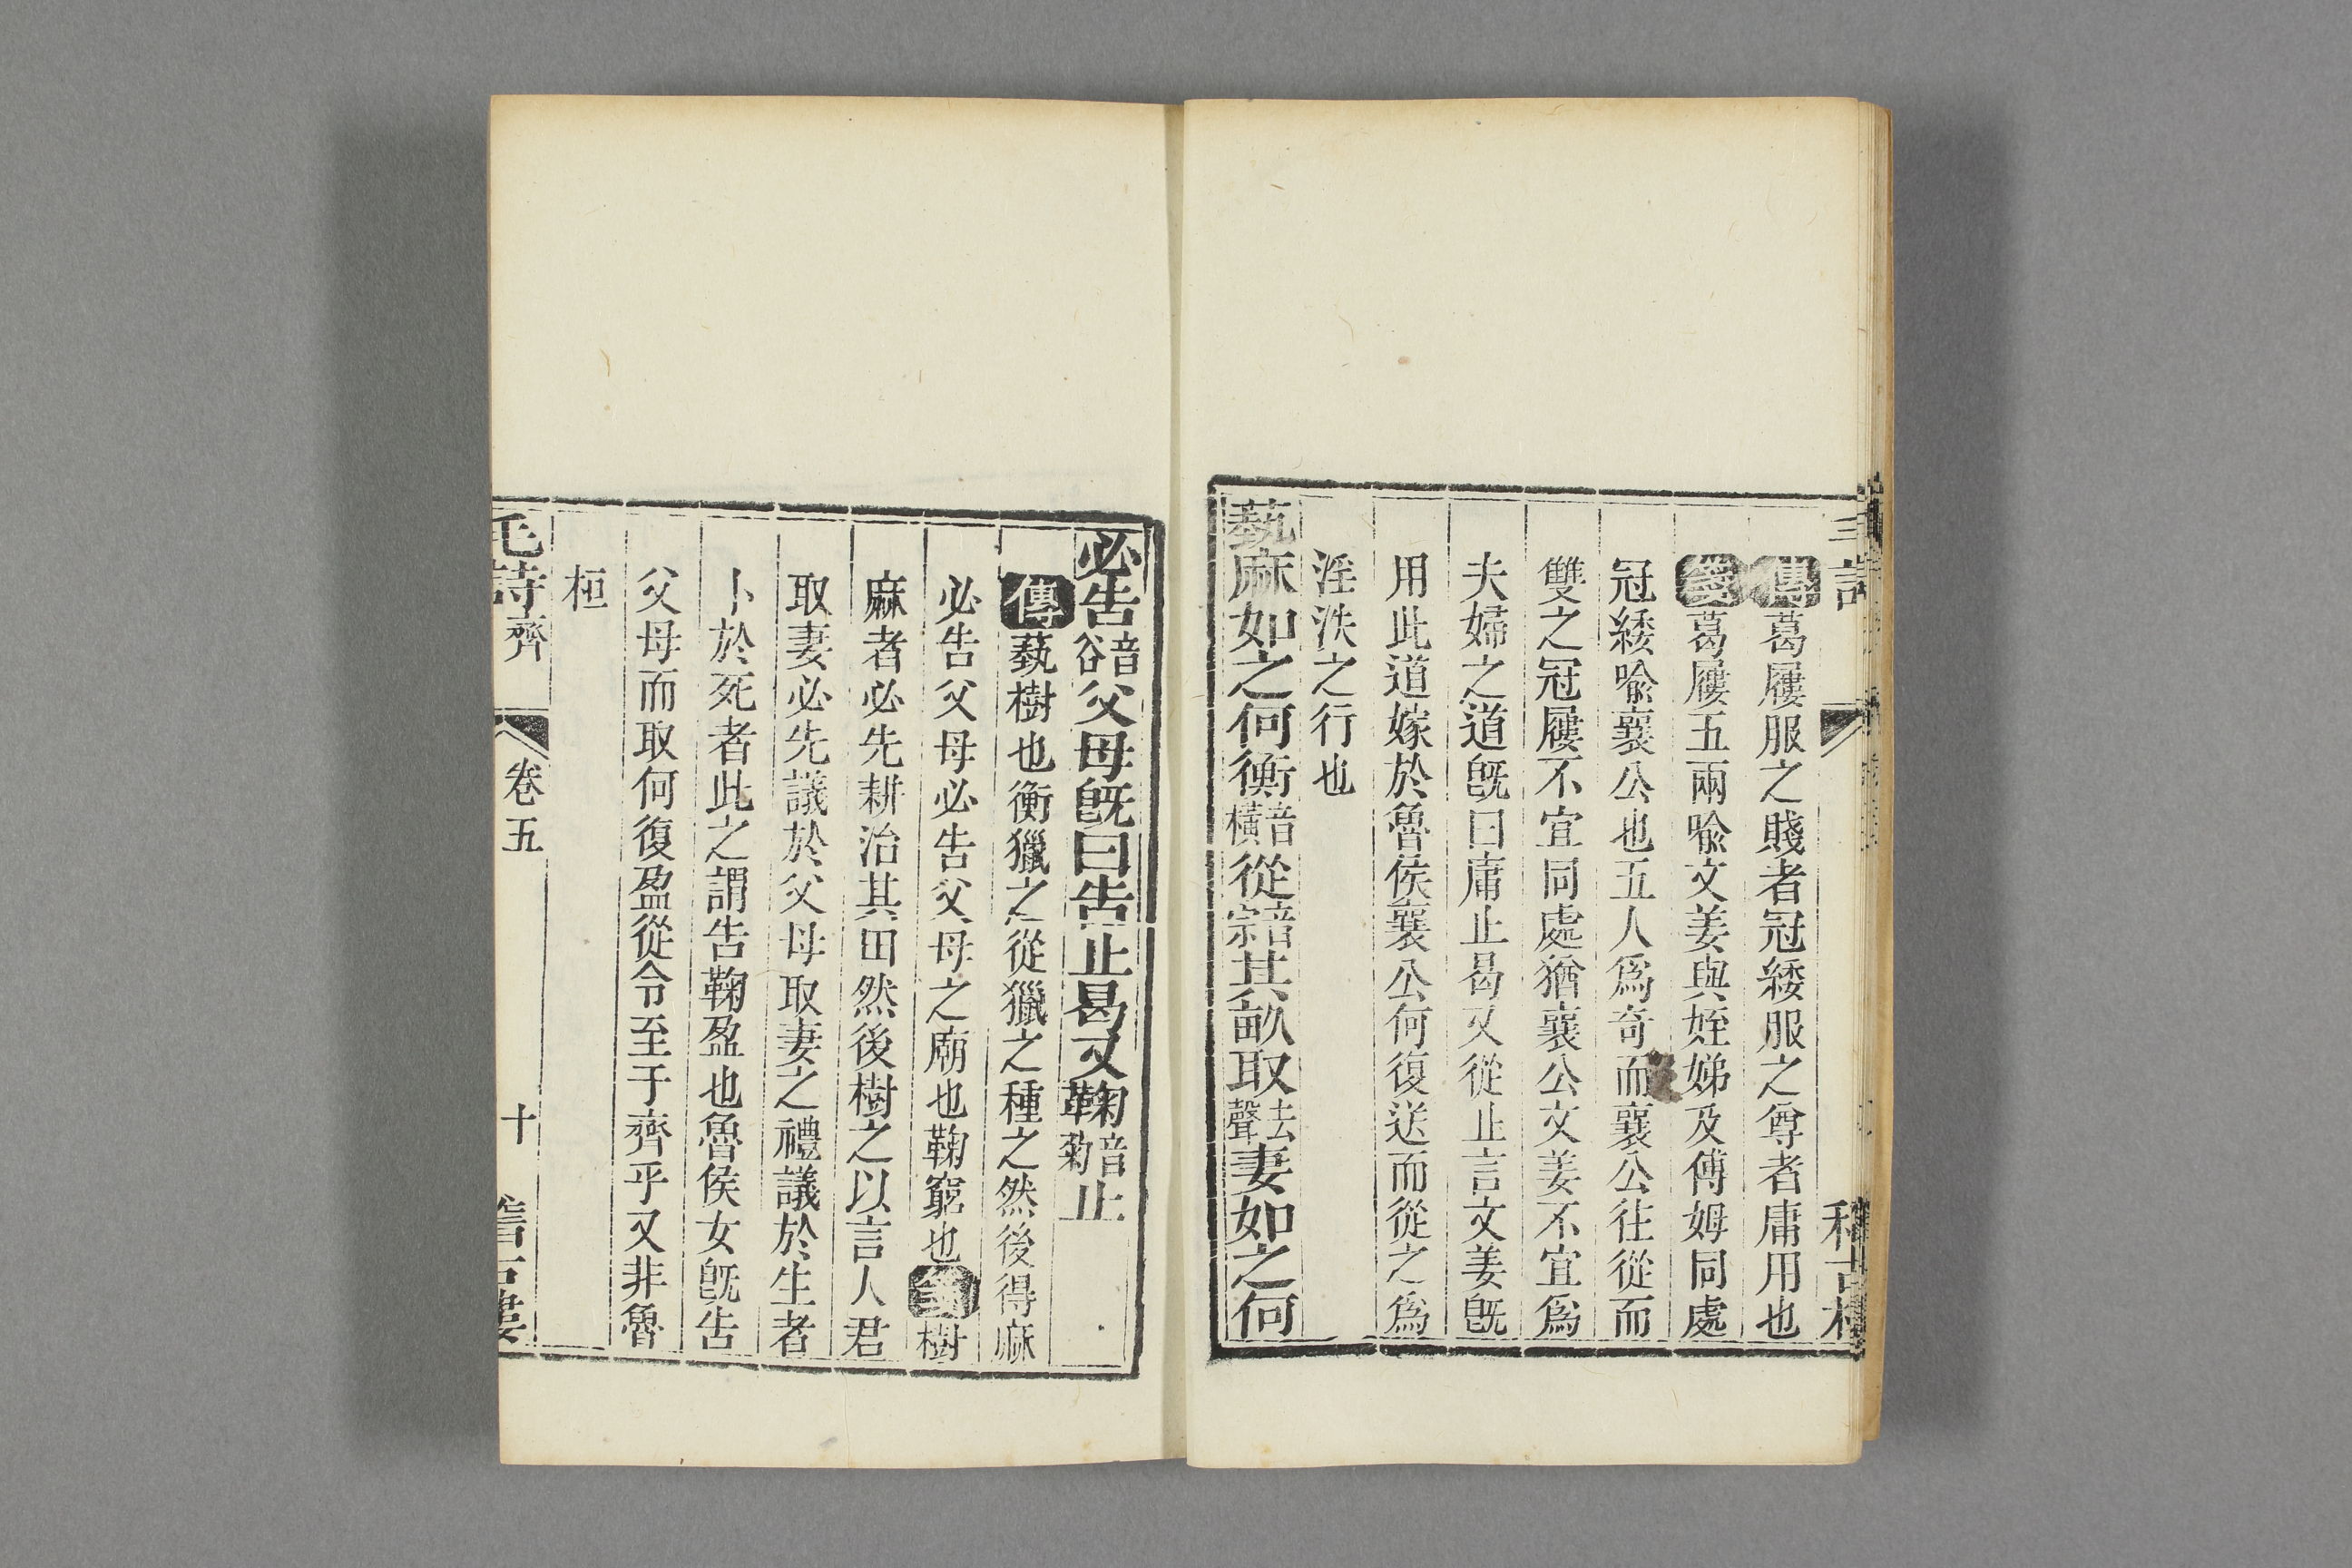 傳葛屨服之賤者冠緌服之尊者庸用也
箋葛屨五兩喻文姜與姪娣及傅姆同處
冠緌喻襄公也五人爲奇而襄公往從而
雙之冠屨不宜同處猶襄公文姜不宜爲
夫婦之道旣曰庸止曷又從止言文姜旣
用此道嫁於魯侯襄公何復送而從之爲
淫泆之行也
蓺麻如之何衡音橫從音宗其畝取去聲妻如之何
必告音谷父母旣曰告止曷又鞠音菊止
傳蓺樹也衡獵之從獵之種之然後得麻
必告父母必告父母之廟也鞠窮也箋樹
麻者必先耕治其田然後樹之以言人君
取妻必先議於父母取妻之禮議於生者
卜於死者此之謂告鞠盈也魯侯女旣告
父母而取何復盈從令至于齊乎又非魯
桓
毛詩齊 卷五 十